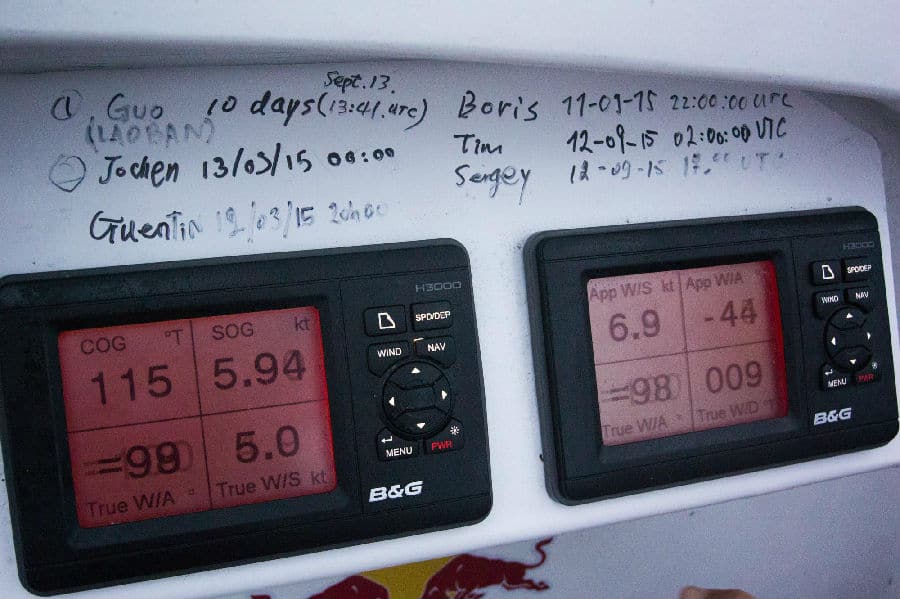 Sept. 13.
1 Guo 10 days (13:41. utc)
(LAOBAN)
2 Jochen 13/03/15 00:00
Guentin 12/03/15 20h00
Boris 11-09-15 22:00:00 UTC
Tim 12-09-15 02:00:00 UTC
Sergey 12-09-15
H3000
COG °T
115
SOG kt
5.94
True W/A °
5.0
True W/S kt
SPD/DEP
WIND
NAV
MENU
PWR
B&G
H3000
App W/S kt
6.9
App W/A °
-44
=98
True W/A °
009
True W/D °
SPD/DEP
WIND
NAV
MENU
PWR
B&G